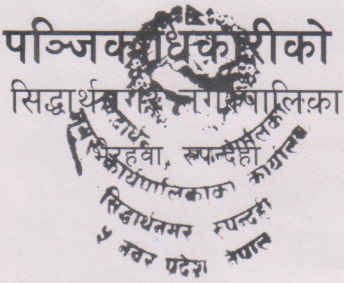 पञ्जिकाधिकारीको
सिद्धार्थनगर नगरपालिका
भैरहवा, रुपन्देही
नगर कार्यपालिकाको कार्यालय
सिद्धार्थनगर रुपन्देही
५ नंवर प्रदेश नेपाल